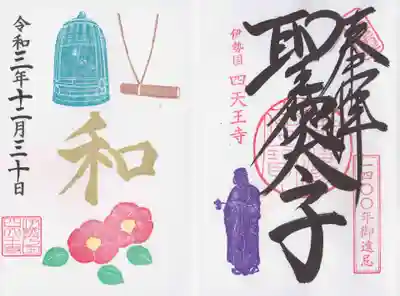 奉拝
聖徳太子
伊勢国 四天王寺
一四〇〇年御遠忌
和
令和三年十二月三十日